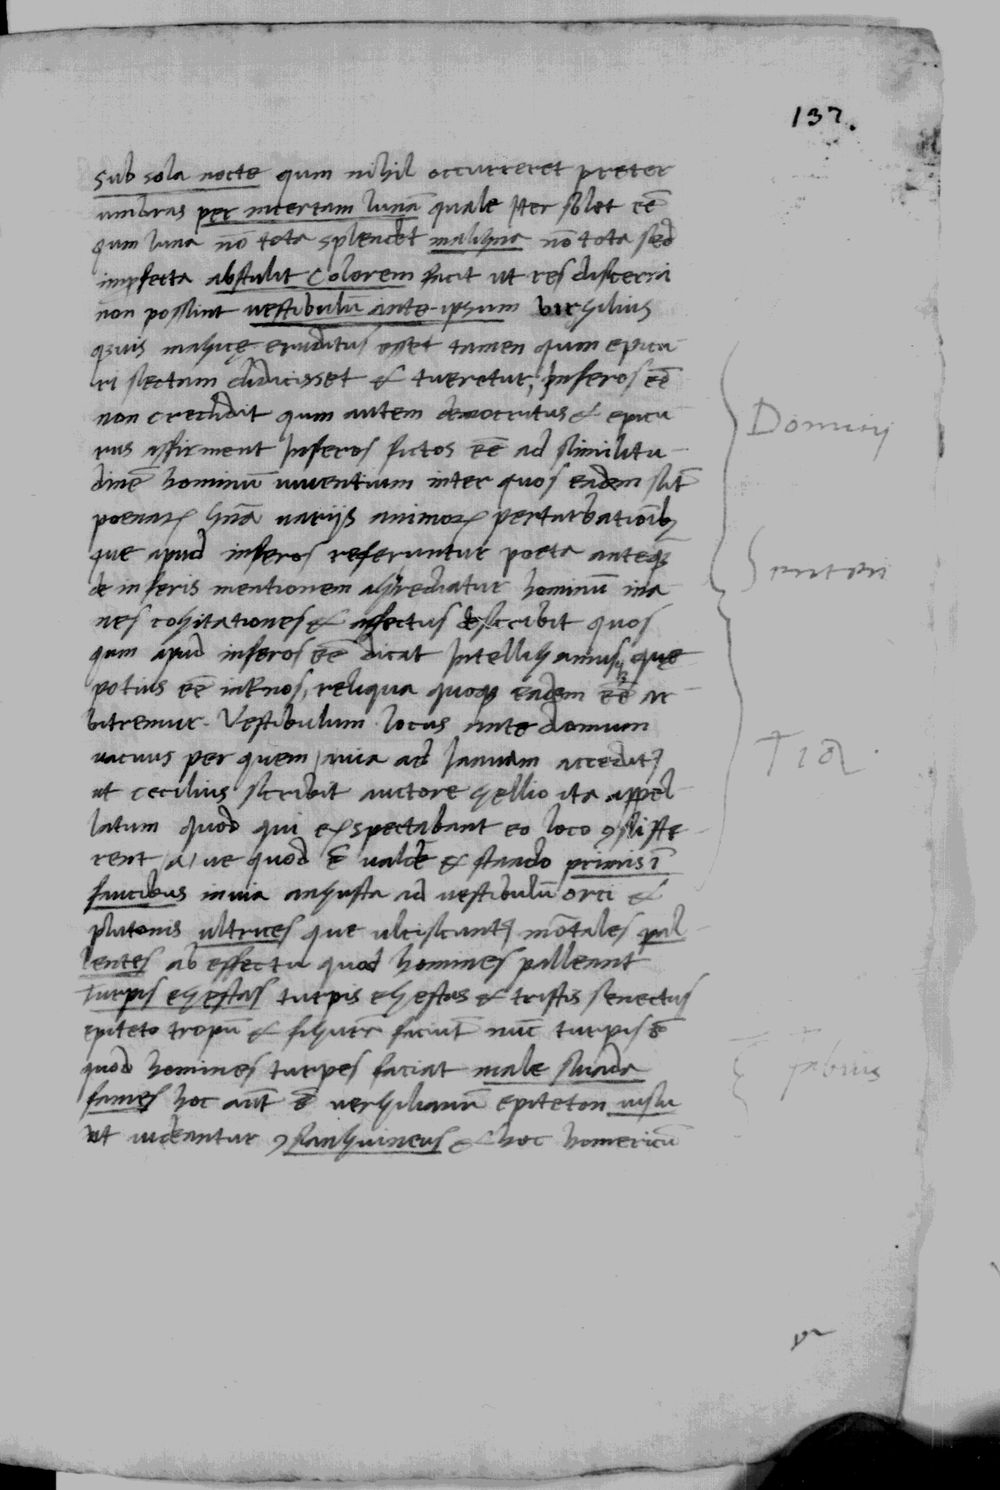 137.
sub sola nocte quum nihil occurreret preter
umbras per incertam lunã quale Iter solet eẽ
quum luna nõ tota splendet maligna nõ tota sed
imperfecta abstulit Colorem facit ut res discerni
non possint uestibulũ ante ipsum virgilius
q̃uis magicę eruditus esset tamen quum epicu-
ri sectam didicisset & tueretur, Inferos eẽ
non credidit quum autem democritus & epicu
rus affirment Inferos fictos eẽ ad similitu-
dinẽ hominũ uiuentium inter quos eadem sũt
poenarꝝ gña uarijs animorꝝ perturbationibꝫ
que apud inferos referuntur poeta anteq̃
de inferis mentionem aggrediatur hominũ ina-
nes cogitationes & affectus describit quos
quum apud inferos eẽ dicat Intelligamus que
potius eẽ inter nos, reliqua quoqꝫ eadem eẽ ar-
bitremur. Vestibulum locus ante domum
uacuus per quem uia ad Ianuam accedit
ut cecilius scribit auctore gellio ita appel
latum quod qui exspectabant eo loco ꝯsiste
rent a ue quod ẽ ualde & stando primis ĩ
faucibus in uia angusta ad uestibulũ orci &
plutonis ultrices que ulciscantur mortales pal
lentes ab effectu quod homines palleant
Turpis egestas turpis egestas & tristis senectus
epiteto tropũ & figuram faciunt nũc turpis ẽ
quod homines turpes faciat male suada
fames hoc aũt ẽ uergilianũ epiteton uisu
ut uideantur ꝯsanguineus & hoc homericũ
Domitij
Seruii
Fabius